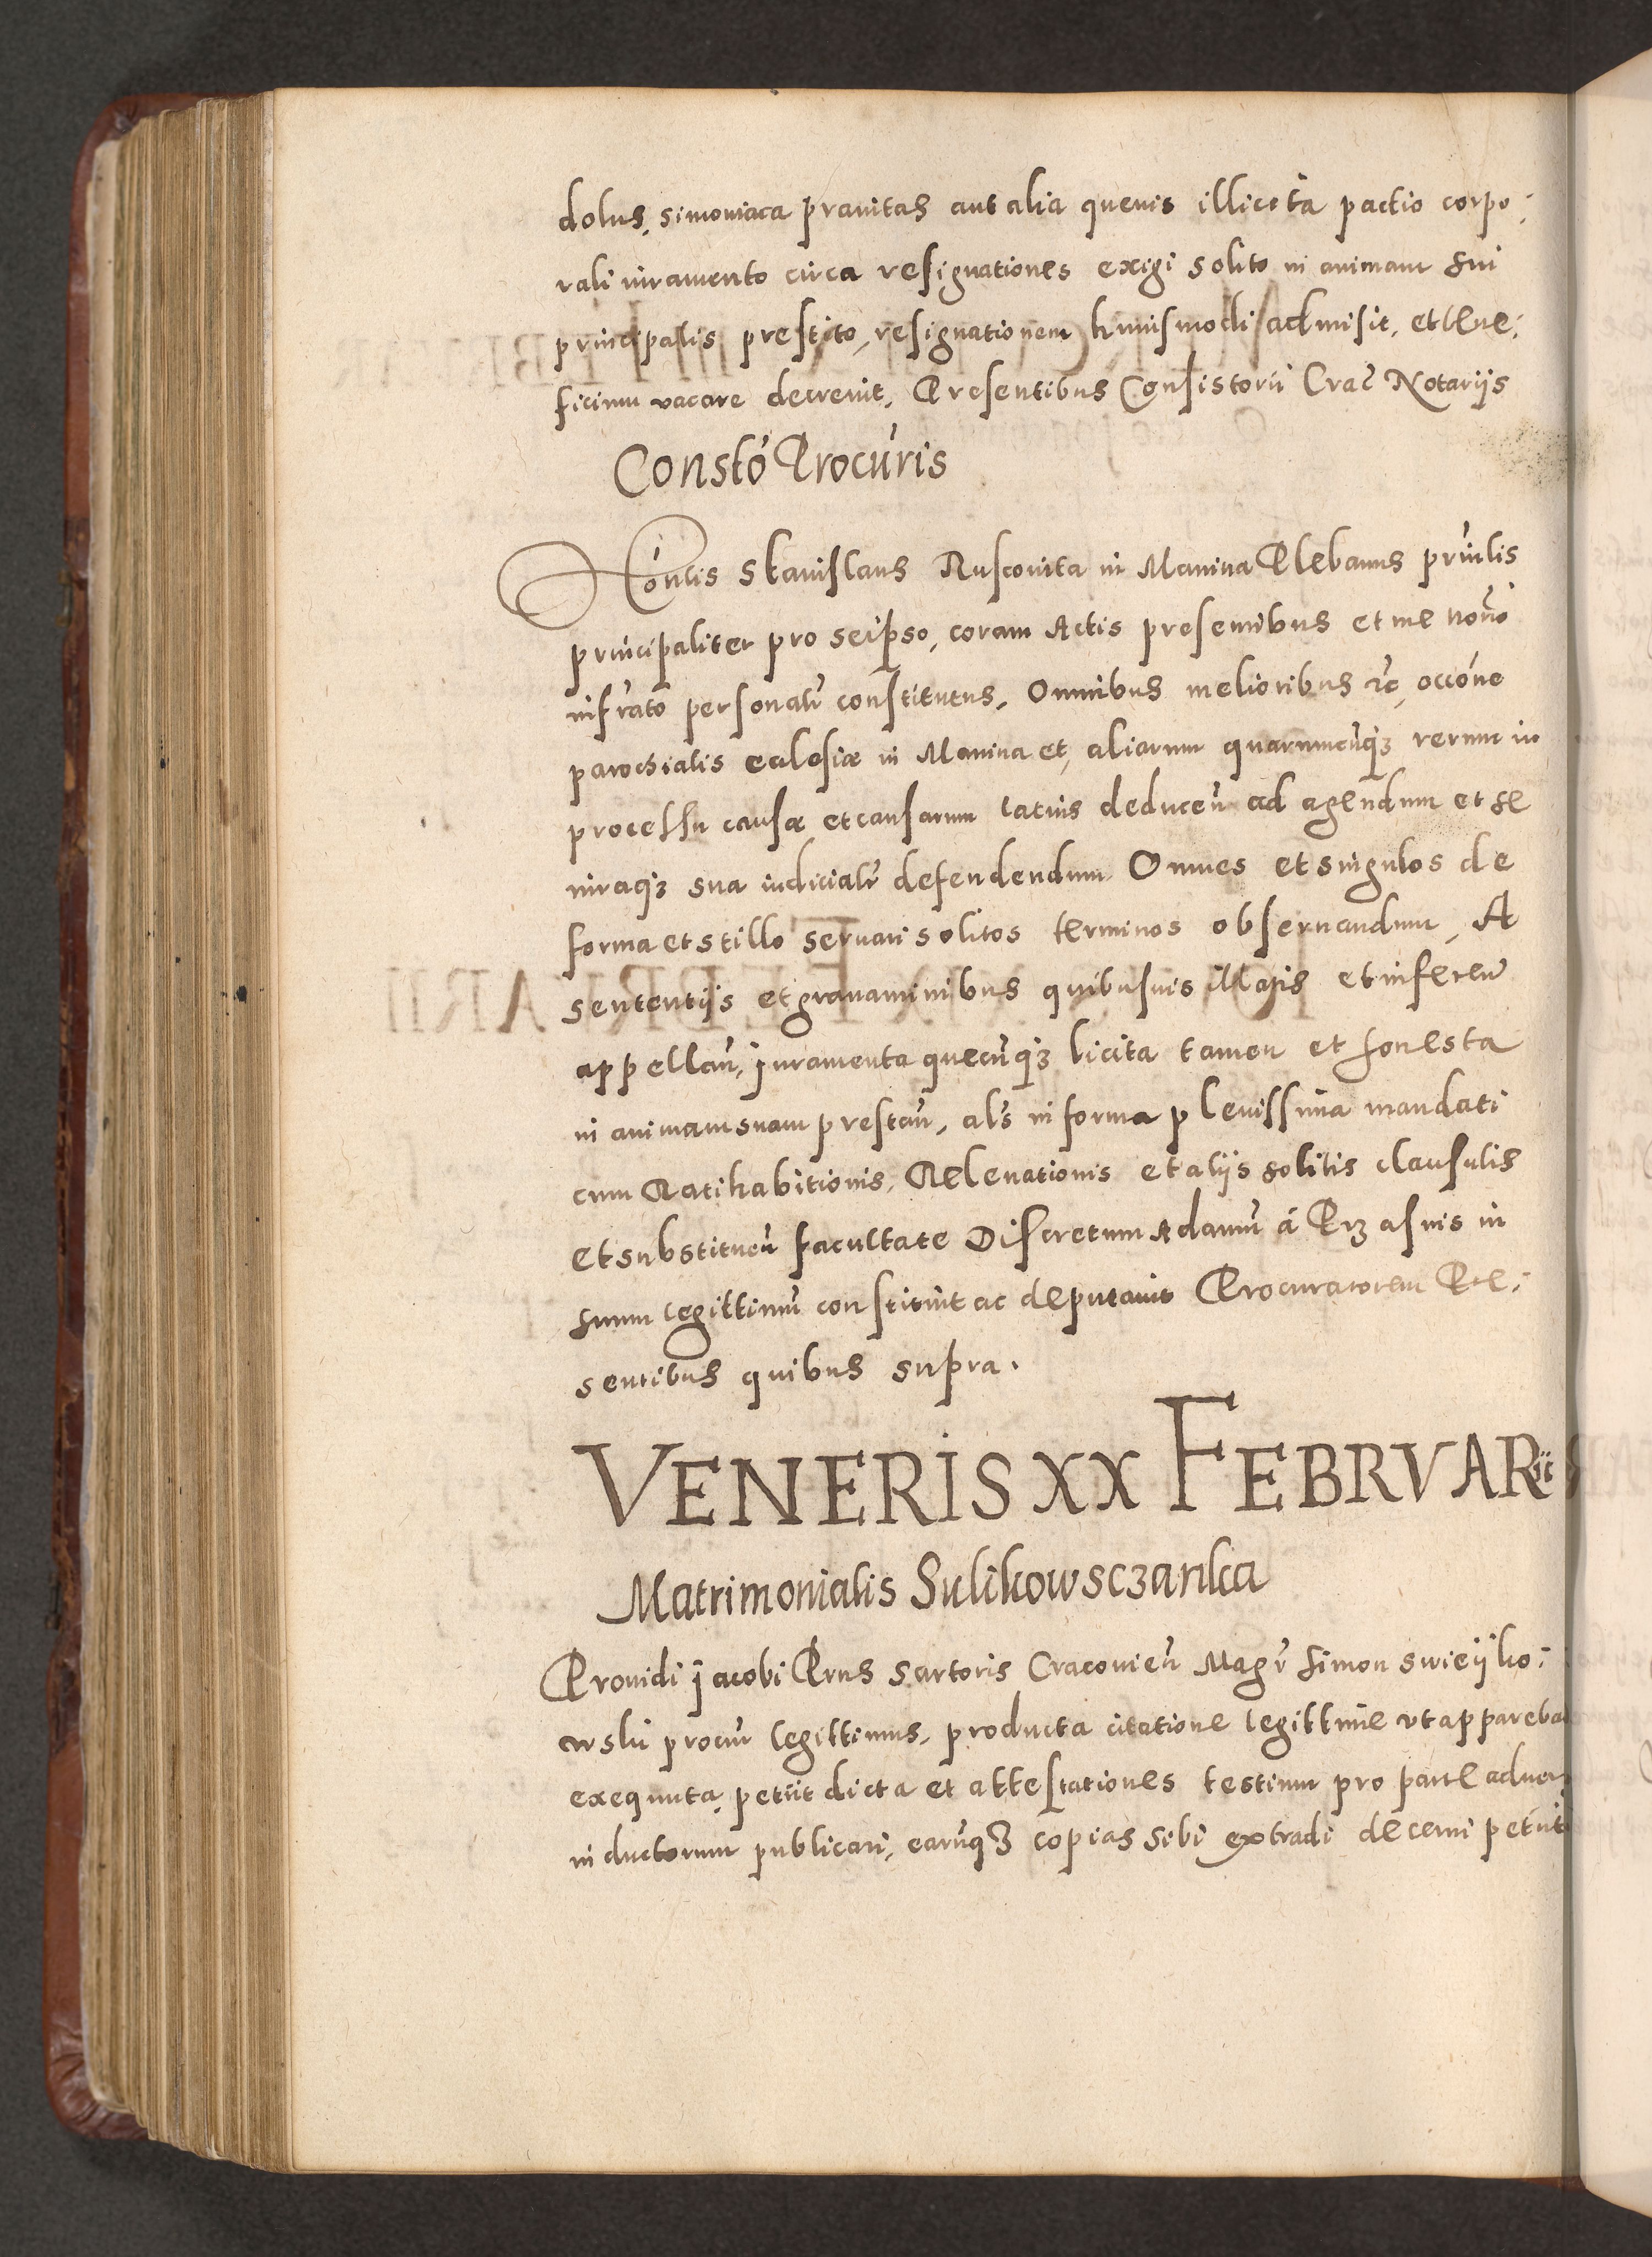 dolus, simoniaca pravitas aut alia quevis illicita pactio corpo:
rali iuramento circa resignationes exigi solito in animam sui
principalis prestito, resignationem huiusmodi admisit, et bene:
ficium vacare decrevit, Presentibus Consistorii Crac Notarijs
Consto Procuris
Honlis Stanislaus Rusconita in Manina Plebanus prnlis
principaliter pro seipso, coram Actis presentibus et me noto
infrato personalr constitutus, Omnibus melioribus etc, occone
parochialis ecclesiæ in Manina et, aliarum quarumcunqz rerum in
processu causæ et causarum latius deducen ad agendum et se
iuraqz sua iudicialr defendendum Omnes et singulos de
forma et stillo servari solitos terminos observandum, A
sententijs et gravaminibus quibusuis illatis et inferen
appellan, Juramenta quecunqz licita tamen et honesta
in animam suam prestan, als in forma plenissima mandati
cum Ratihabitionis, Relevationis et alijs solitis clausulis
Et substituen facultate Discretum Adamu á Przasnis in
suum legittimu constituit ac deputavit Procuratorem Pre:
sentibus quibus supra.
VENERIS XX FEBRVARii
Matrimonialis Sulikowsczanka
Providi Jacobi Prus Sartoris Cracovien Magr Simon Swieijko:
wski procur legittimus, producta citatione legittime ut apparebat
exequuta, petiit dicta et attestationes testium pro parte adver
inductorum publicari, earuqz copias sibi extradi decerni petiit